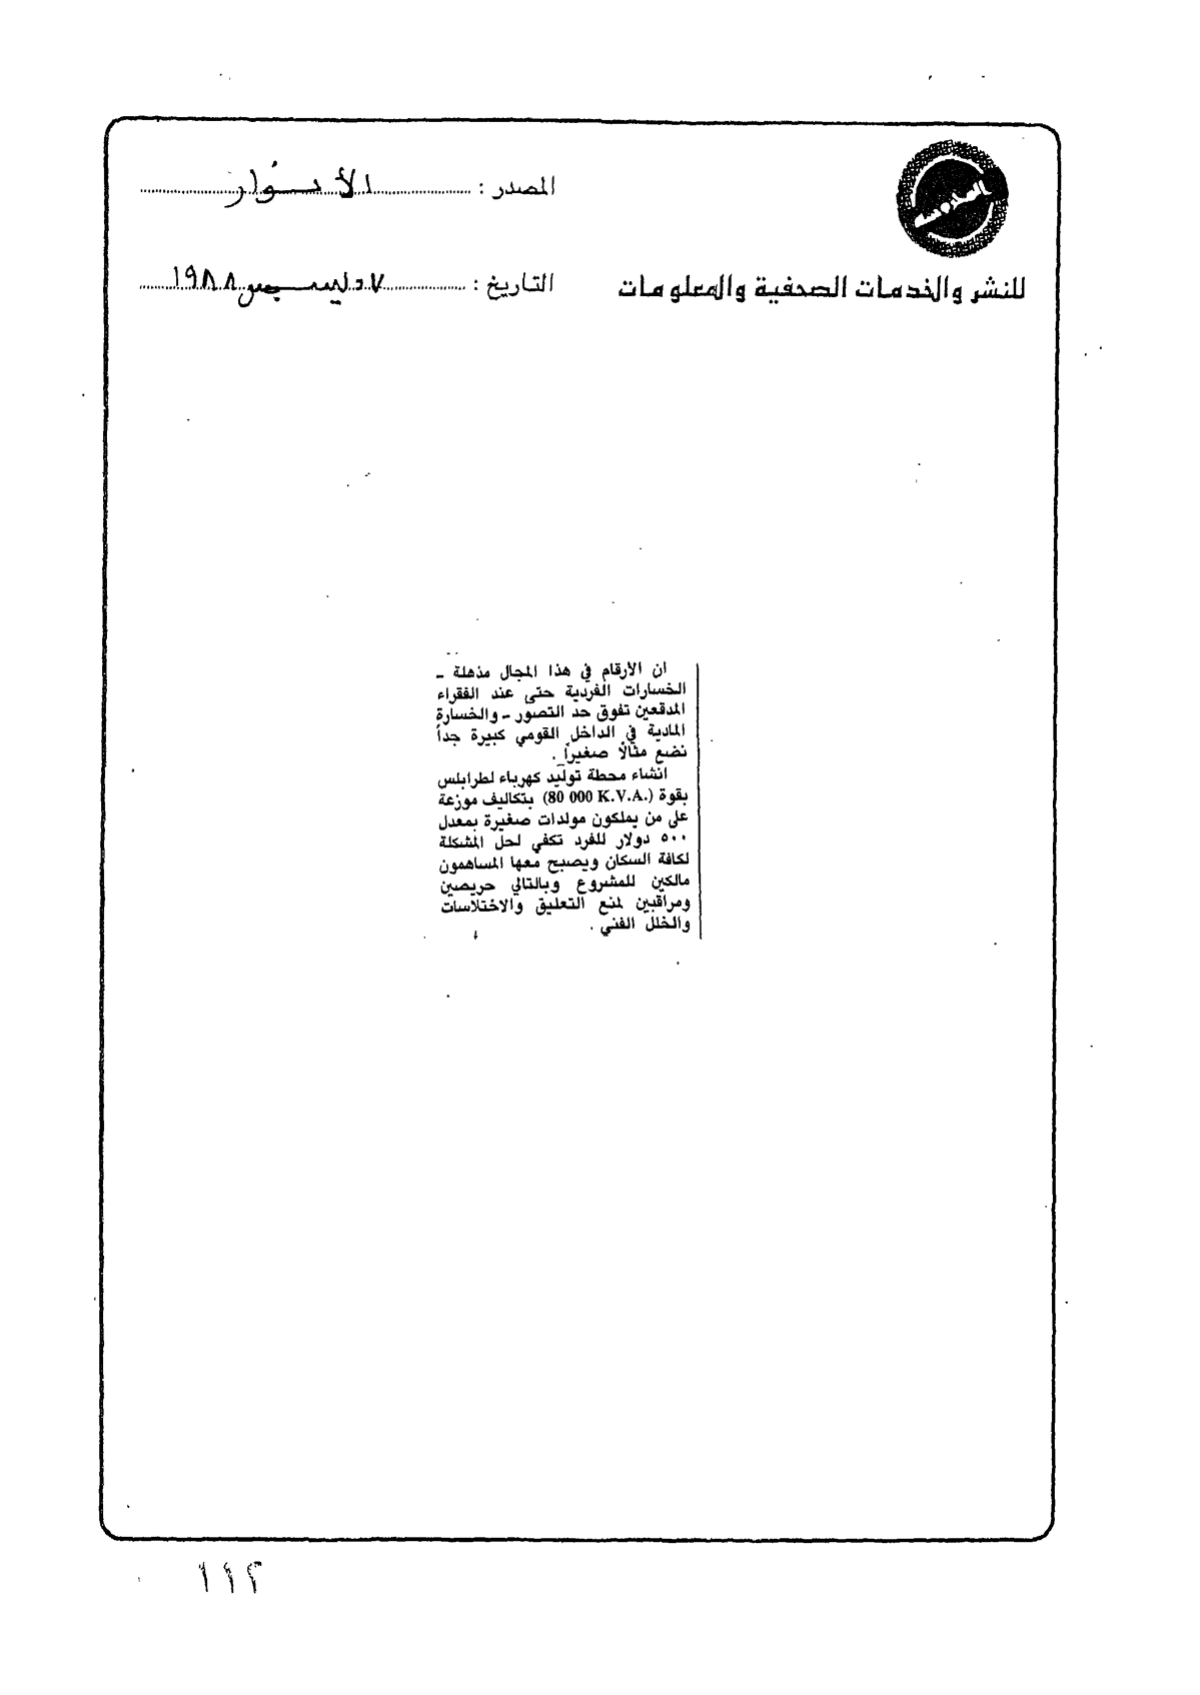 المصدر : الأنوار
للنشر والخدمات الصحفية والمعلومات
التاريخ : ٧ ديسمبر ١٩٨٨
ان الأرقام في هذا المجال مذهلة ـ
الخسارات الفردية حتى عند الفقراء
المدقعين تفوق حد التصور ـ والخسارة
المادية في الداخل القومي كبيرة جداً
نضع مثالاً صغيراً .
انشاء محطة توليد كهرباء لطرابلس
بقوة (80 000 K.V.A.) بتكاليف موزعة
على من يملكون مولدات صغيرة بمعدل
٥٠٠ دولار للفرد تكفي لحل المشكلة
لكافة السكان ويصبح معها المساهمون
مالكين للمشروع وبالتالي حريصين
ومراقبين لمنع التعليق والاختلاسات
والخلل الفني .
١١٢